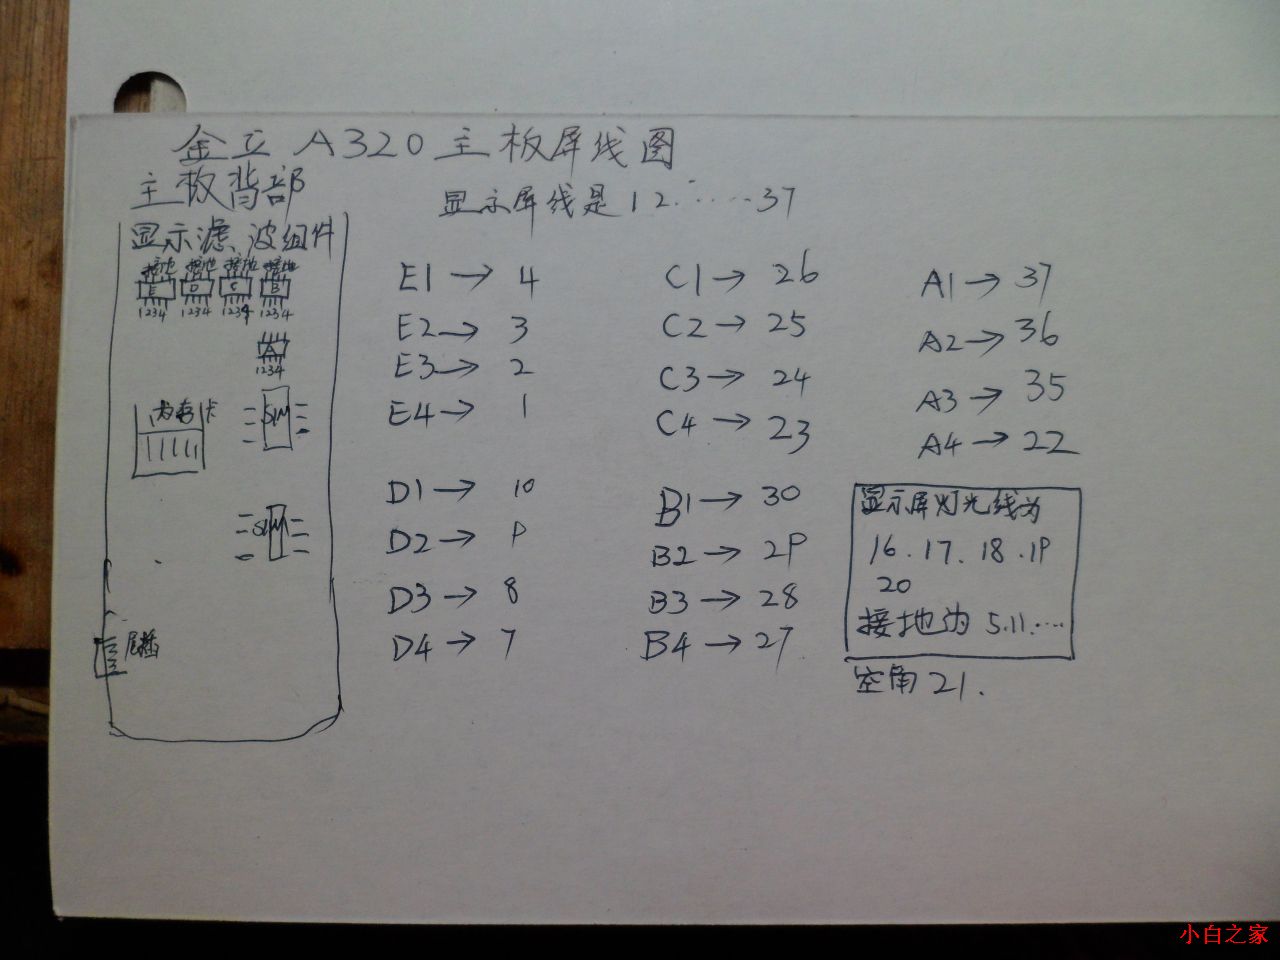 金立 A320 主板屏线图
主板背部
显示屏线是 1 2 ······ 37
显示滤、波组件
接地 接地 接地 接地
E D C B
1234 1234 1234 1234
A
1234
内存卡
SIM
SIM
尾插
E1 → 4
E2 → 3
E3 → 2
E4 → 1
D1 → 10
D2 → 9
D3 → 8
D4 → 7
C1 → 26
C2 → 25
C3 → 24
C4 → 23
B1 → 30
B2 → 29
B3 → 28
B4 → 27
A1 → 37
A2 → 36
A3 → 35
A4 → 22
显示屏灯光线为
16 . 17 . 18 . 19
20
接地为 5.11.····
空角 21 .
小白之家